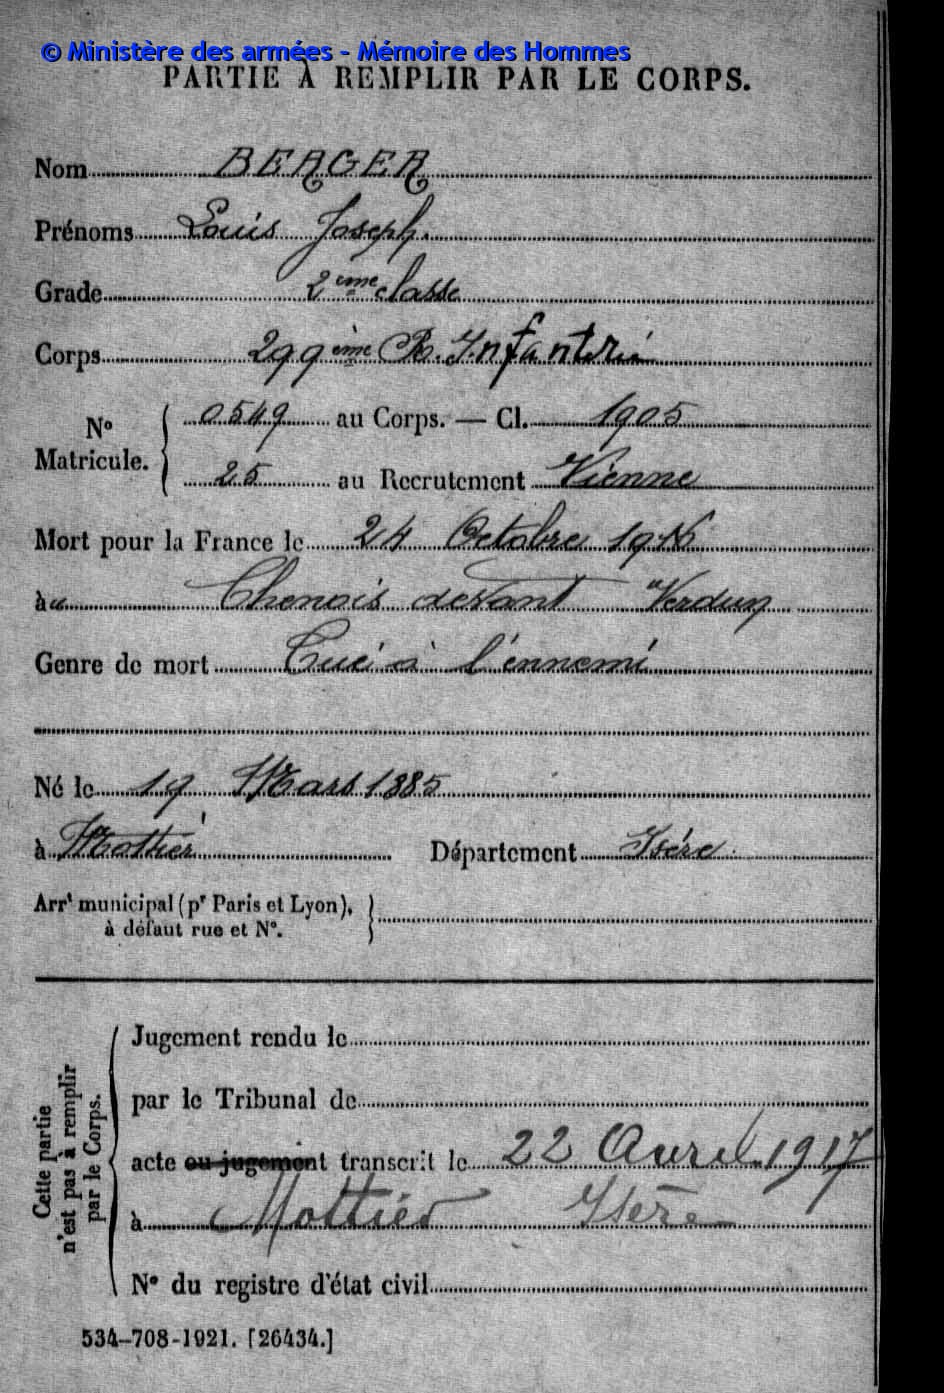 © Ministère des armées - Mémoire des Hommes
PARTIE À REMPLIR PAR LE CORPS.
Nom BERGER
Prénoms Louis Joseph.
Grade 2ème classe
Corps 299ème R. Infanterie
No Matricule. { 0549 au Corps. — Cl. 1905
25 au Recrutement Vienne
Mort pour la France le 24 Octobre 1916
à Chenois devant Verdun
Genre de mort Tué à l'ennemi
Né le 19 Mars 1885
à Mottier Département Isère
Arrt municipal (pr Paris et Lyon),
à défaut rue et N°.
Cette partie n'est pas à remplir par le Corps.
Jugement rendu le
par le Tribunal de
acte ou jugement transcrit le 22 Avril 1917
à Mottier Isère
N° du registre d'état civil
534-708-1921. [26434.]